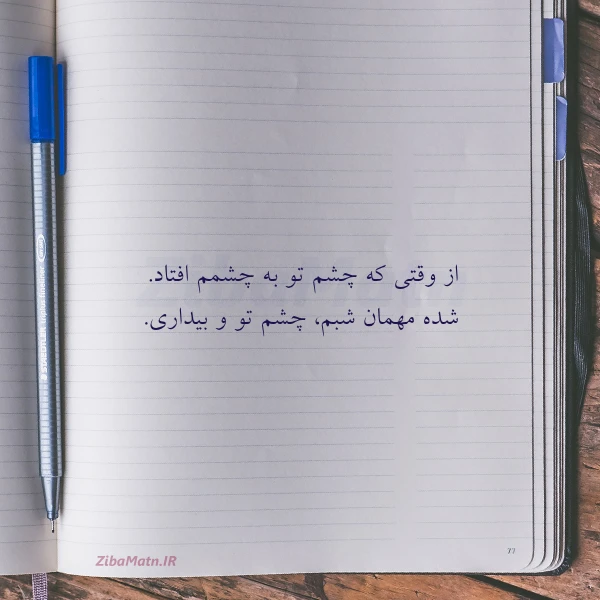 از وقتی که چشم تو به چشمم افتاد.
شده مهمان شبم، چشم تو و بیداری.
STAEDTLER triplus fineliner
77
ZibaMatn.IR